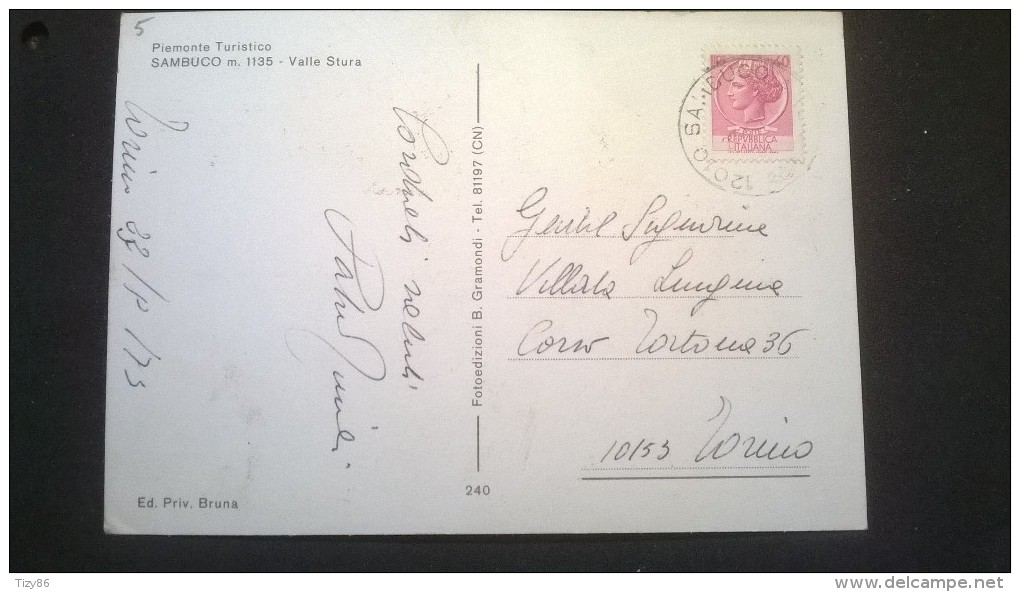 5
Piemonte Turistico
SAMBUCO m. 1135 - Valle Stura
Cordiali saluti
Fotoedizioni B. Gramondi - Tel. 81197 (CN)
240
Ed. Priv. Bruna
40
POSTE
REPVBBLICA
ITALIANA
12010 SAMBUCO
Gentile Signorina
Villata Luigina
Corso Tortona 36
10153 Torino
Tizy86
www.delcampe.net